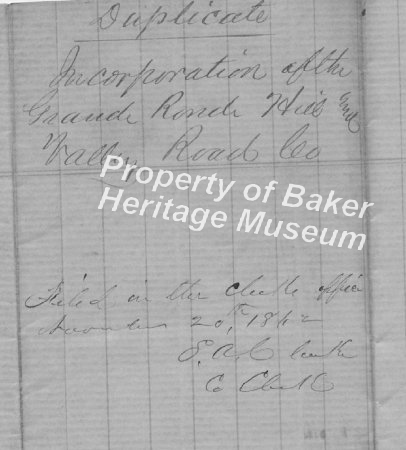 Duplicate
Incorporation of the
Grande Ronde Hill and
Valley Road Co
Property of Baker
Heritage Museum
Filed in the clerk office
20th, 1862
Co Clerk